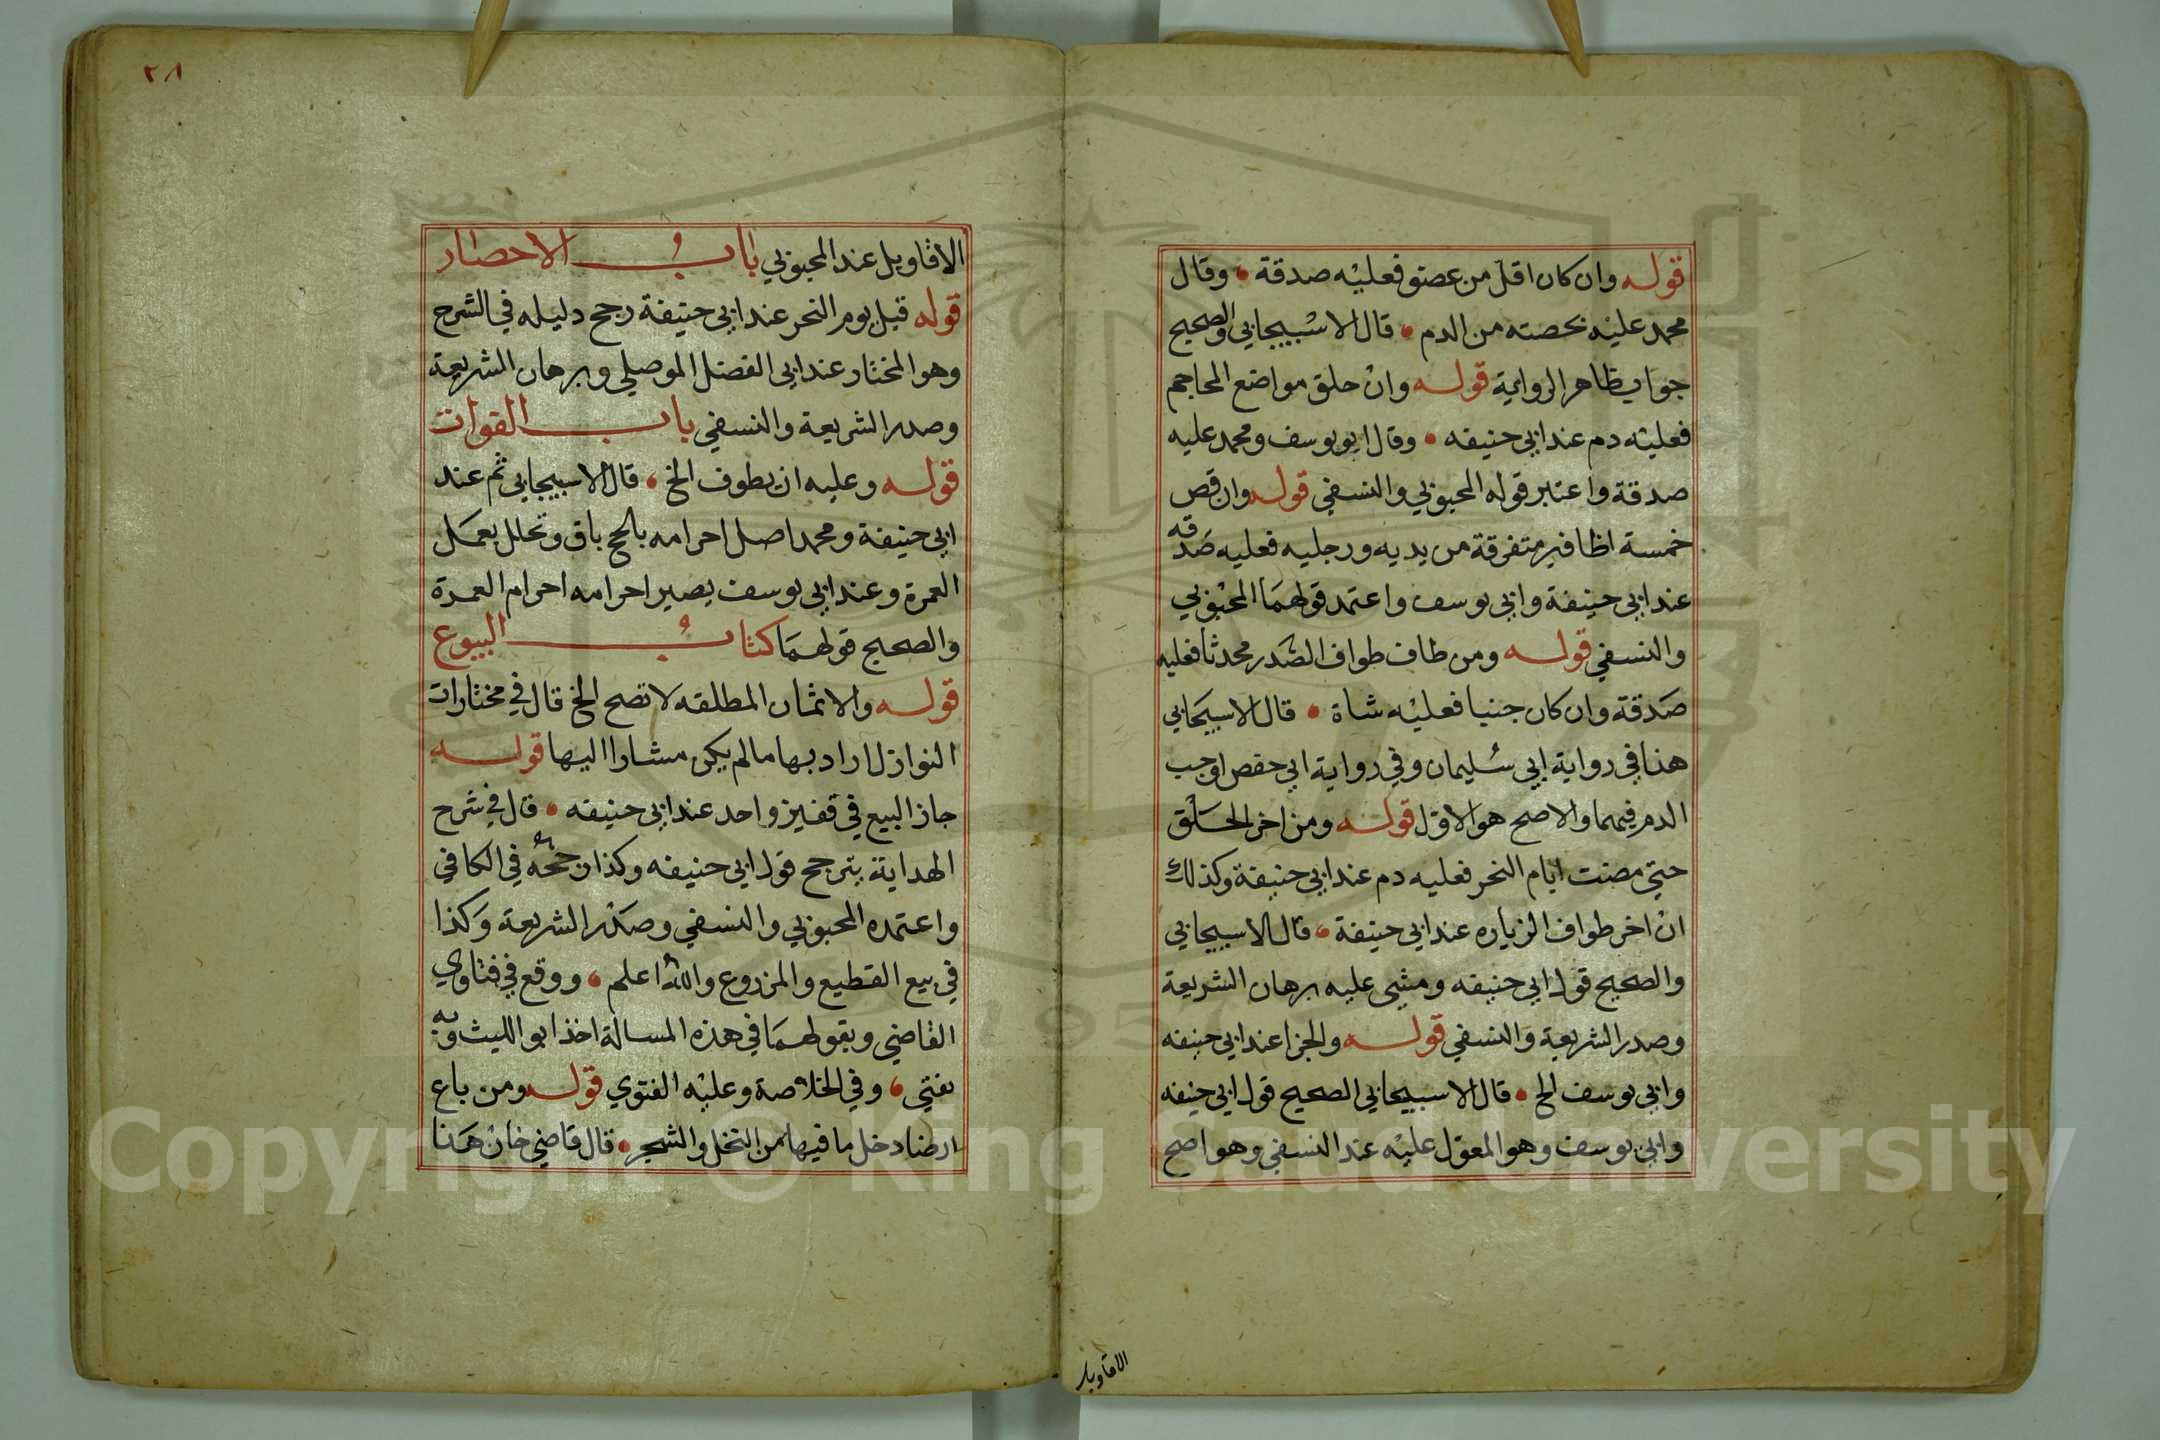 قوله وان كان اقل من عضو فعليه صدقة • وقال
محمد عليه بحصته من الدم • قال الاسبيجابي والصحيح
جواب ظاهر الرواية قوله وان حلق مواضع المحاجم
فعليه دم عند ابي حنيفه • وقال ابو يوسف ومحمد عليه
صدقة واعتبر قوله المحبوبي والنسفي قوله وان قص
خمسة اظافير متفرقة من يديه ورجليه فعليه صدقه
عند ابي حنيفة وابي يوسف واعتمد قولهما المحبوبي
والنسفي قوله ومن طاف طواف الصدر محدثا فعليه
صدقة وان كان جنبا فعليه شاة • قال الاسبيجابي
هذا في رواية ابي سليمان وفي رواية ابي حفص اوجب
الدم فيهما والاصح هو الاول قوله ومن اخر الحلق
حتي مضت ايام النحر فعليه دم عند ابي حنيفة وكذلك
ان اخر طواف الزياره عند ابي حنيفة • قال الاسبيجابي
والصحيح قول ابي حنيفه ومشي عليه برهان الشريعة
وصدر الشريعة والنسفي قوله والجزا عند ابي حنيفه
وابي يوسف الخ • قال الاسبيجابي الصحيح قول ابي حنيفه
وابي يوسف وهو المعول عليه عند النسفي وهو اصح
الاقاويل
٢٨
الاقاويل عند المحبوبي باب الاحصار
قوله قبل يوم النحر عند ابي حنيفة رجح دليله في الشرح
وهو المختار عند ابي الفضل الموصلي وبرهان الشريعة
وصدر الشريعة والنسفي باب الفوات
قوله وعليه ان يطوف الخ • قال الاسبيجابي ثم عند
ابي حنيفة ومحمد اصل احرامه بالحج باق وتحلل بعمل
العمرة وعند ابي يوسف يصير احرامه احرام العمرة
والصحيح قولهما كتاب البيوع
قوله والاثمان المطلقه لا تصح الخ قال في مختارات
النوازل اراد بها ما لم يكن مشارا اليها قوله
جاز البيع في قفيز واحد عند ابي حنيفه • قال في شرح
الهداية يترجح قول ابي حنيفه وكذا رجحه في الكافي
واعتمده المحبوبي والنسفي وصدر الشريعة وكذا
في بيع القطيع والمزروع والله اعلم • ووقع في فتاوي
القاضي وبقولهما في هذه المسالة اخذ ابو الليث وبه
يفتي • وفي الخلاصة وعليه الفتوي قوله ومن باع
ارضا دخل ما فيها من النخل والشجر • قال قاضي خان هذا
Copyright © King Saud University
1957